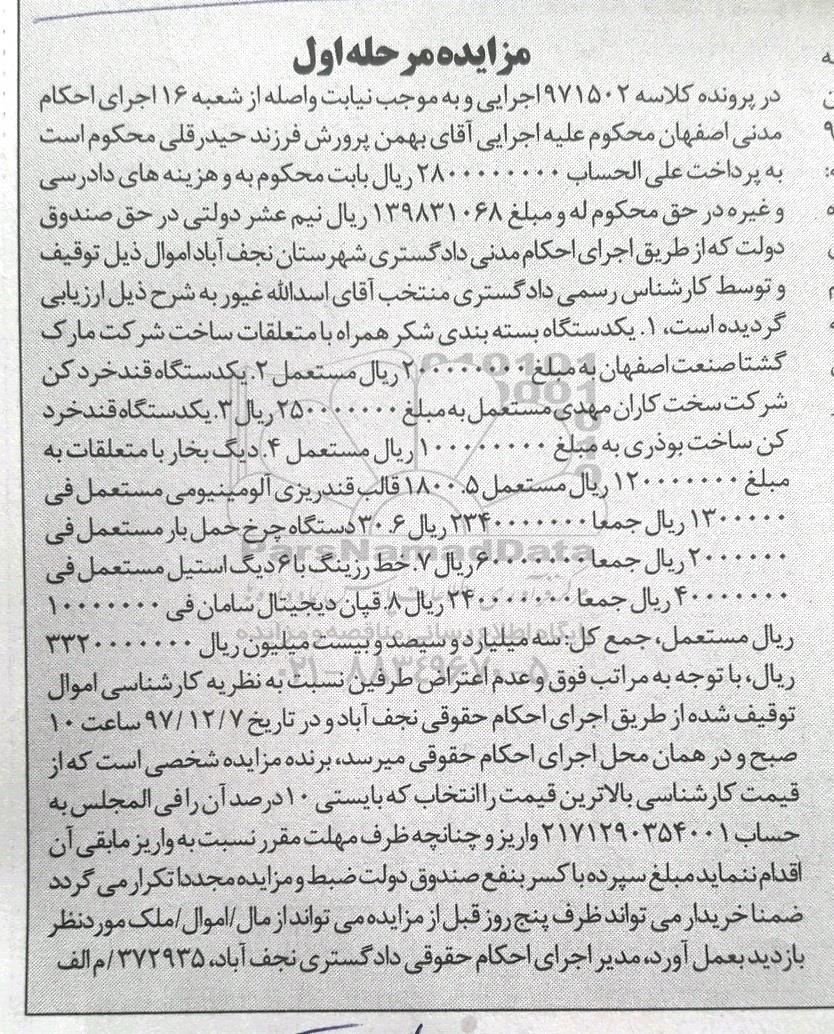 مزایده مرحله اول
در پرونده کلاسه ۹۷۱۵۰۲ اجرایی و به موجب نیابت واصله از شعبه ۱۶ اجرای احکام
مدنی اصفهان محکوم علیه اجرایی آقای بهمن پرورش فرزند حیدرقلی محکوم است
به پرداخت علی الحساب ۲۸۰۰۰۰۰۰۰۰ ریال بابت محکوم به و هزینه های دادرسی
و غیره در حق محکوم له و مبلغ ۱۳۹۸۳۱۰۶۸ ریال نیم عشر دولتی در حق صندوق
دولت که از طریق اجرای احکام مدنی دادگستری شهرستان نجف آباد اموال ذیل توقیف
و توسط کارشناس رسمی دادگستری منتخب آقای اسدالله غیور به شرح ذیل ارزیابی
گردیده است، ۱. یکدستگاه بسته بندی شکر همراه با متعلقات ساخت شرکت مارک
گشتا صنعت اصفهان به مبلغ ۲۰۰۰۰۰۰۰۰۰ ریال مستعمل ۲. یکدستگاه قند خرد کن
شرکت سخت کاران مهدی مستعمل به مبلغ ۲۵۰۰۰۰۰۰۰ ریال ۳. یکدستگاه قند خرد
کن ساخت بوذری به مبلغ ۱۰۰۰۰۰۰۰۰ ریال مستعمل ۴. دیگ بخار با متعلقات به
مبلغ ۱۲۰۰۰۰۰۰۰ ریال مستعمل ۵. ۱۸۰۰ قالب قندریزی آلومینیومی مستعمل فی
۱۳۰۰۰۰ ریال جمعا ۲۳۴۰۰۰۰۰۰ ریال ۶. ۳۰ دستگاه چرخ حمل بار مستعمل فی
۲۰۰۰۰۰۰ ریال جمعا ۶۰۰۰۰۰۰۰ ریال ۷. خط رزینگ با ۶ دیگ استیل مستعمل فی
۴۰۰۰۰۰۰۰ ریال جمعا ۲۴۰۰۰۰۰۰۰ ریال ۸. قپان دیجیتال سامان فی ۱۰۰۰۰۰۰۰
ریال مستعمل، جمع کل: سه میلیارد و سیصد و بیست میلیون ریال ۳۳۲۰۰۰۰۰۰۰
ریال، با توجه به مراتب فوق و عدم اعتراض طرفین نسبت به نظریه کارشناسی اموال
توقیف شده از طریق اجرای احکام حقوقی نجف آباد و در تاریخ ۹۷/۱۲/۷ ساعت ۱۰
صبح و در همان محل اجرای احکام حقوقی میرسد، برنده مزایده شخصی است که از
قیمت کارشناسی بالاترین قیمت را انتخاب که بایستی ۱۰ درصد آن را فی المجلس به
حساب ۲۱۷۱۲۹۰۳۵۴۰۰۱ واریز و چنانچه ظرف مهلت مقرر نسبت به واریز مابقی آن
اقدام ننماید مبلغ سپرده با کسر بنفع صندوق دولت ضبط و مزایده مجددا تکرار می گردد
ضمنا خریدار می تواند ظرف پنج روز قبل از مزایده می تواند از مال/اموال/ملک مورد نظر
بازدید بعمل آورد، مدیر اجرای احکام حقوقی دادگستری نجف آباد، ۳۷۲۹۳۵/م الف
ParsNamadData
پایگاه اطلاع رسانی مناقصه و مزایده